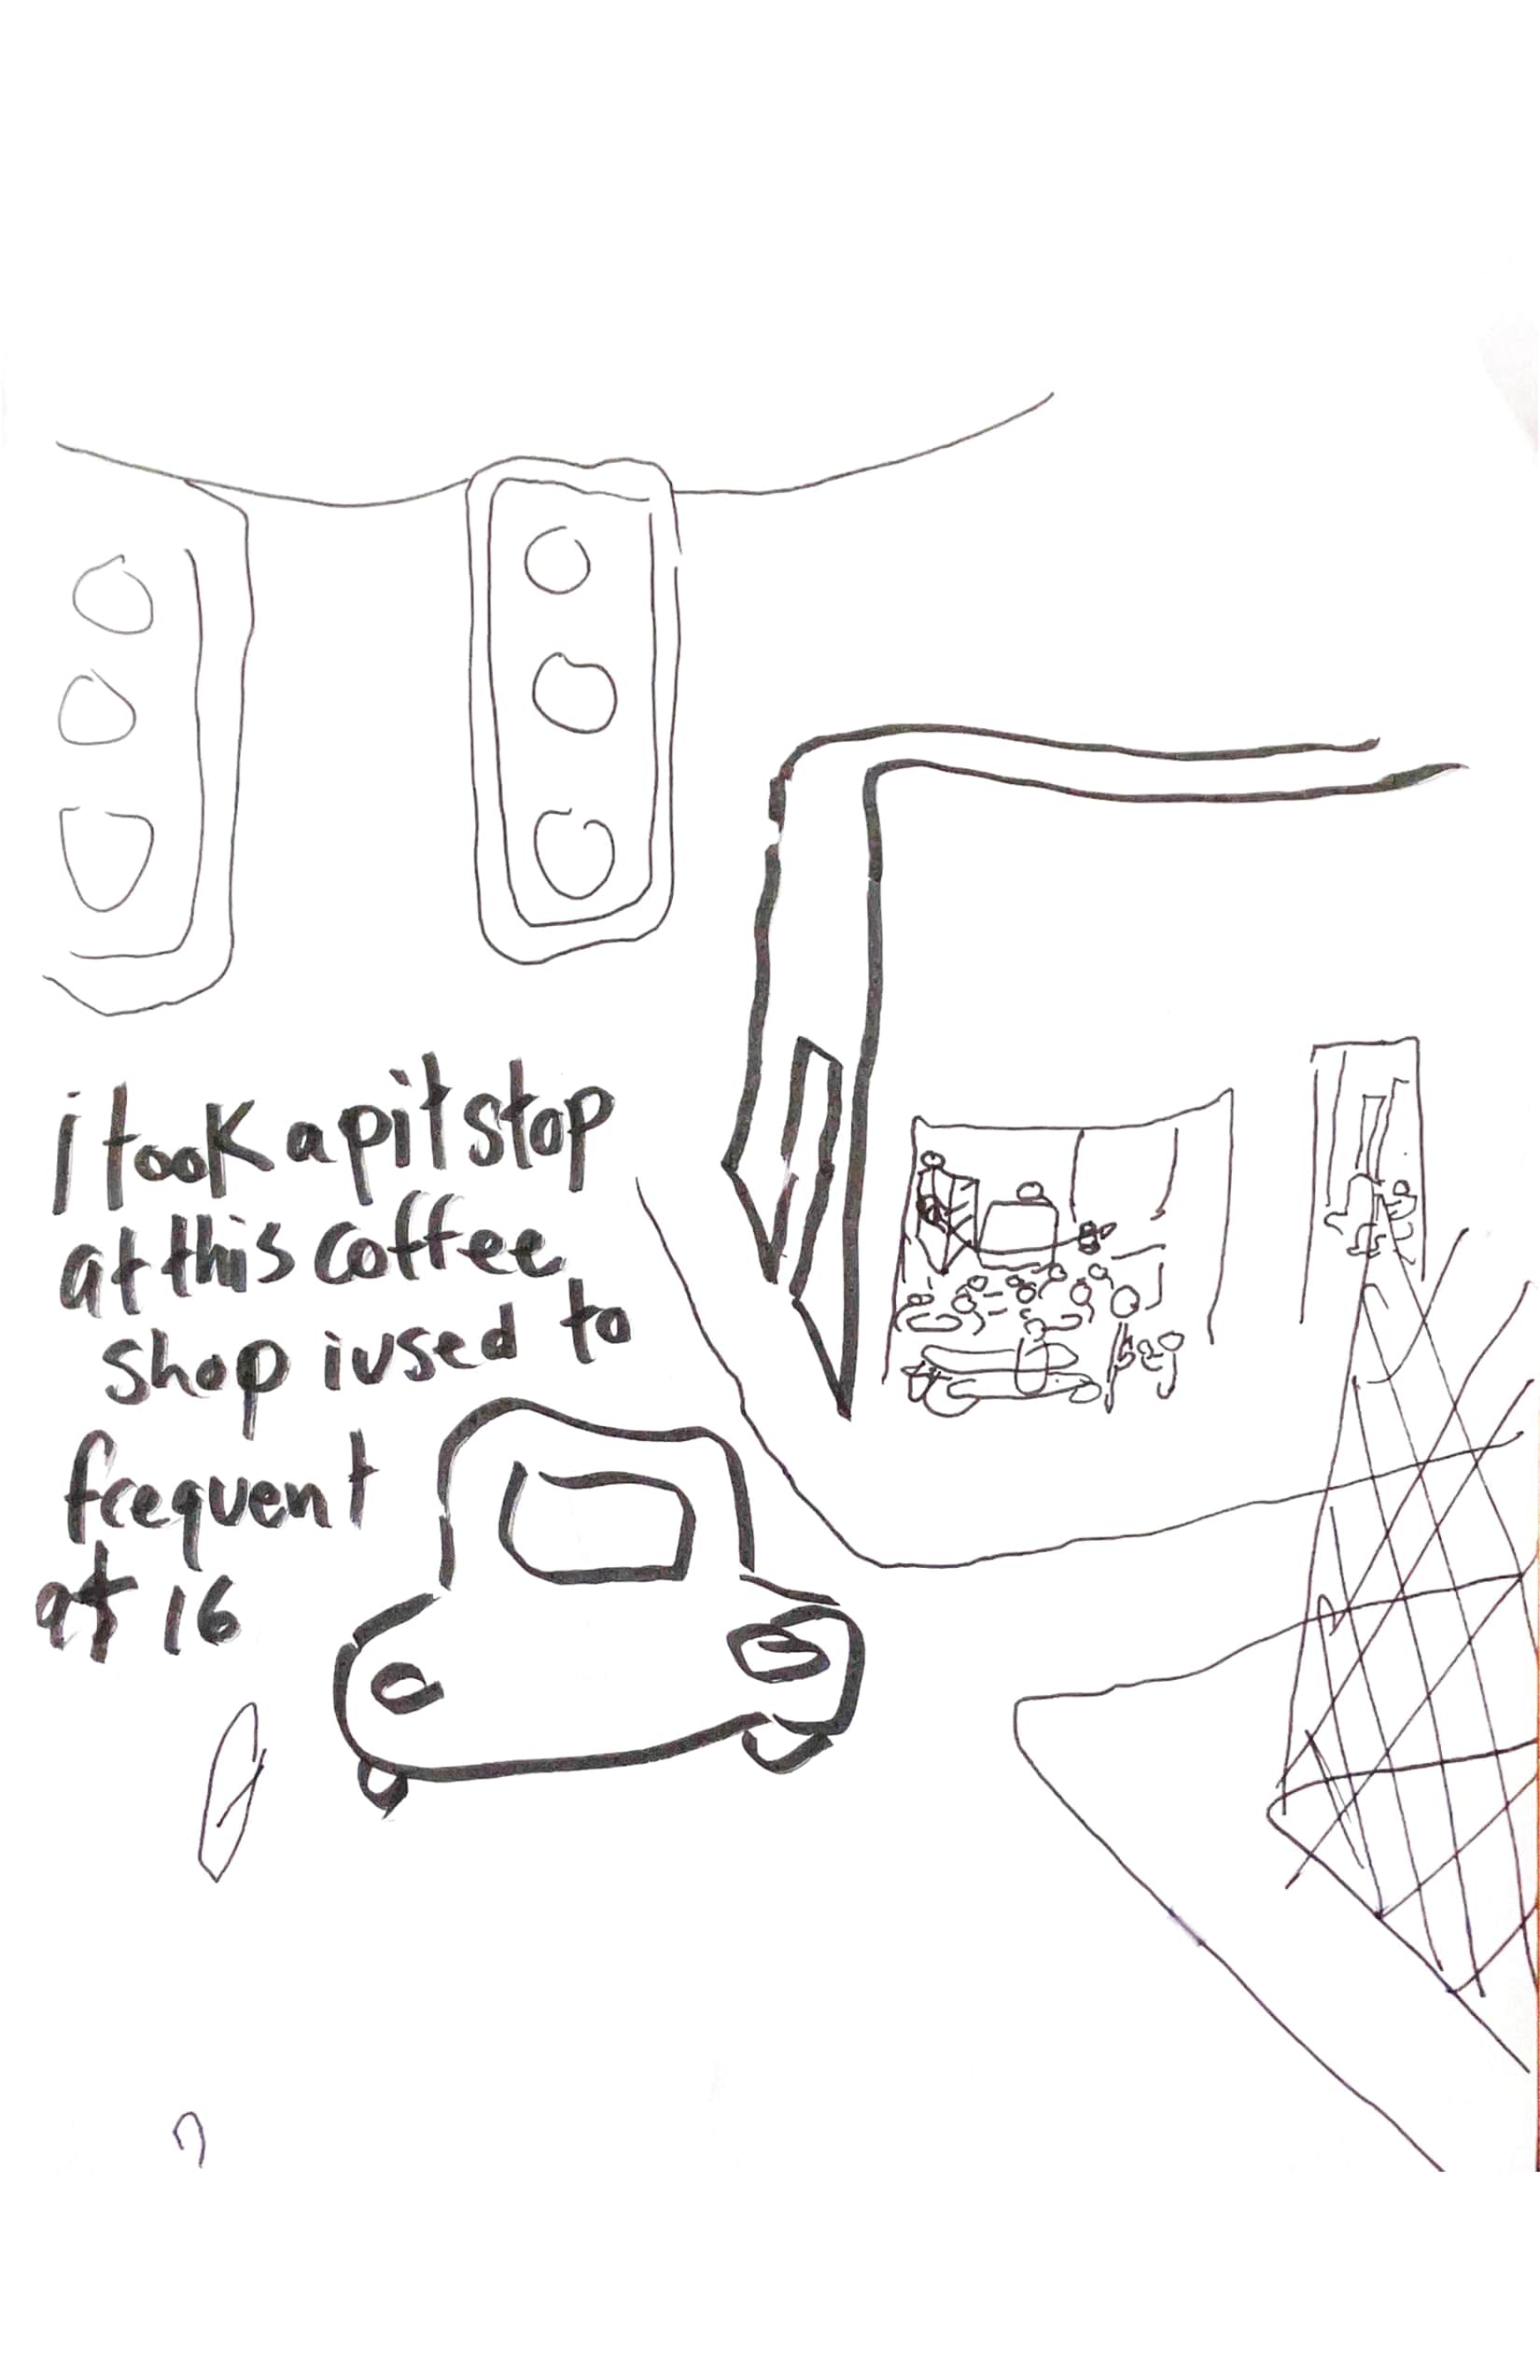 i took a pit stop
at this coffee
shop i used to
frequent
at 16